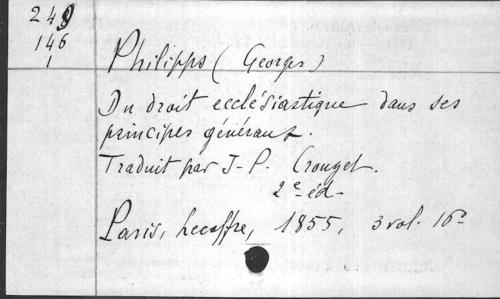 248
146
1
Philipps (Georges)
Du droit ecclésiastique dans ses
principes généraux.
Traduit par J-P. Crouzet.
2e éd-
Paris, Lecoffre, 1855, 3 vol. 16°